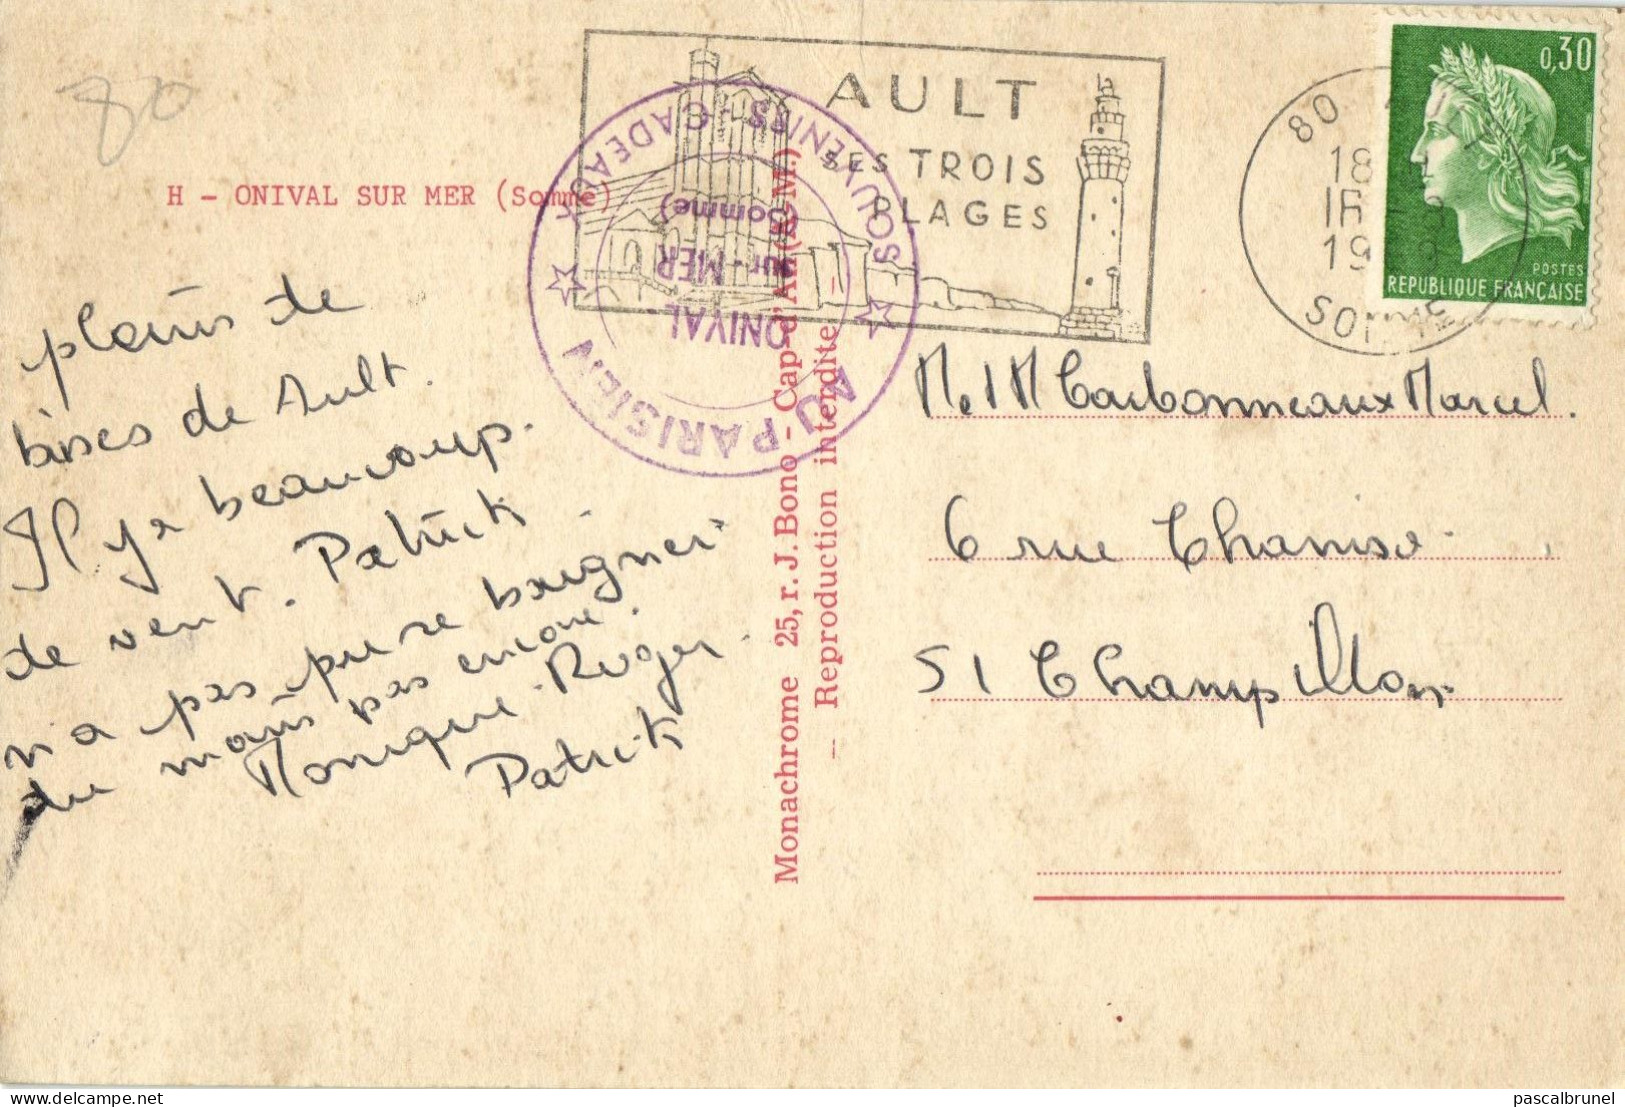 80
H - ONIVAL SUR MER (Somme)
AULT
SES TROIS
PLAGES
80
18
19
SOMME
0,30
POSTES
REPUBLIQUE FRANÇAISE
AU PARISIEN
SOUVENIRS - CADEAUX
ONIVAL
sur-MER
(Somme)
pleins de
bises de Ault.
Il y a beaucoup
de vent. Patrick
n'a pas pu se baigner
du mois pas encore.
Monique Roger
Patrick
Monachrome 25, r. J. Bono - Cap-d'Ail (A.-M.)
- Reproduction interdite -
M. et M Carbonneaux Marcel.
6 rue Chanisse
51 Champillon
pascalbrunel